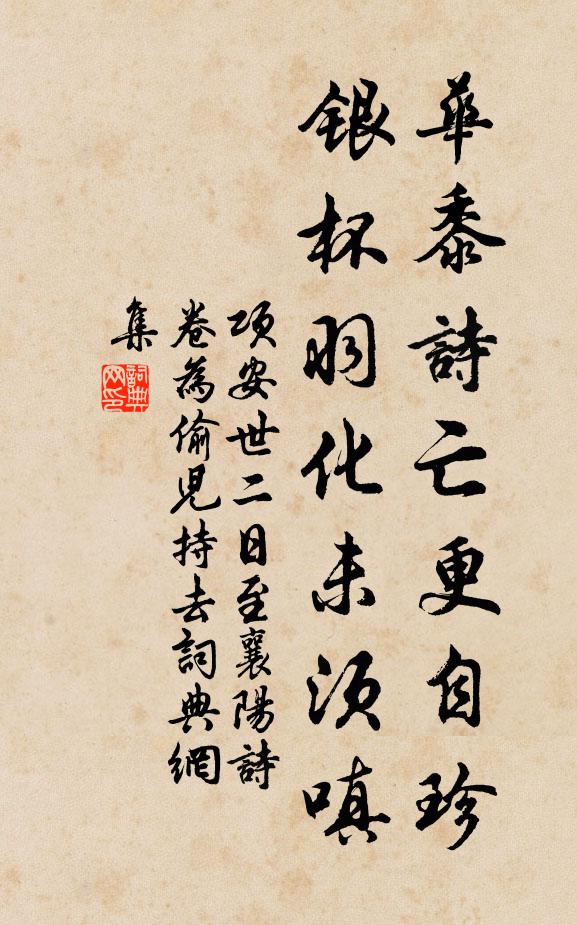 華黍詩亡更自珍
銀杯羽化未須嗔
項安世二日至襄陽詩
卷為偷兒持去詞典網
集
詞典
网印